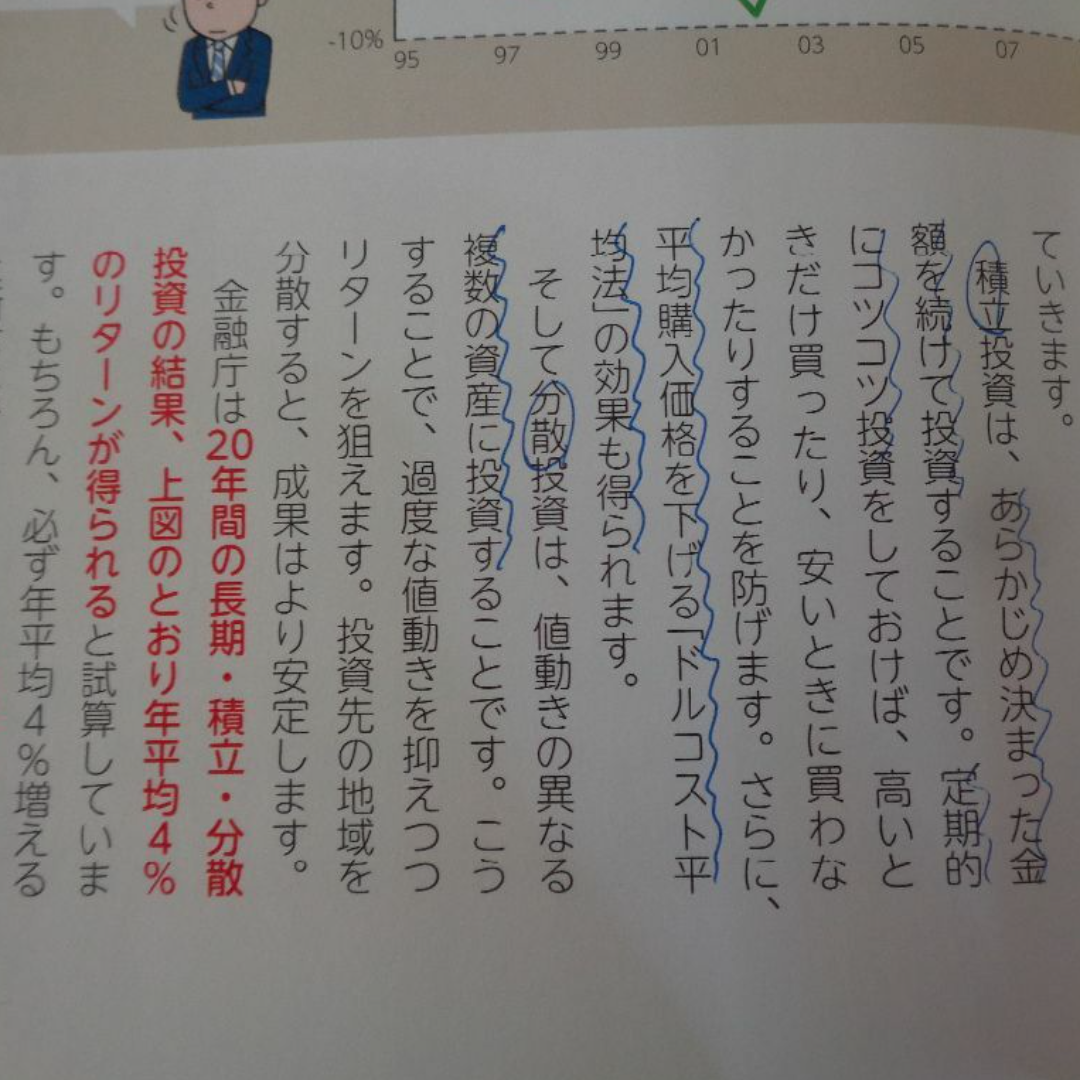 -10%
95 97 99 01 03 05 07
ていきます。
積立投資は、あらかじめ決まった金
額を続けて投資することです。定期的
にコツコツ投資をしておけば、高いと
きだけ買ったり、安いときに買わな
かったりすることを防げます。さらに、
平均購入価格を下げる「ドルコスト平
均法」の効果も得られます。
そして分散投資は、値動きの異なる
複数の資産に投資することです。こう
することで、過度な値動きを抑えつつ
リターンを狙えます。投資先の地域を
分散すると、成果はより安定します。
金融庁は20年間の長期・積立・分散
投資の結果、上図のとおり年平均4%
のリターンが得られると試算していま
す。もちろん、必ず年平均4%増える